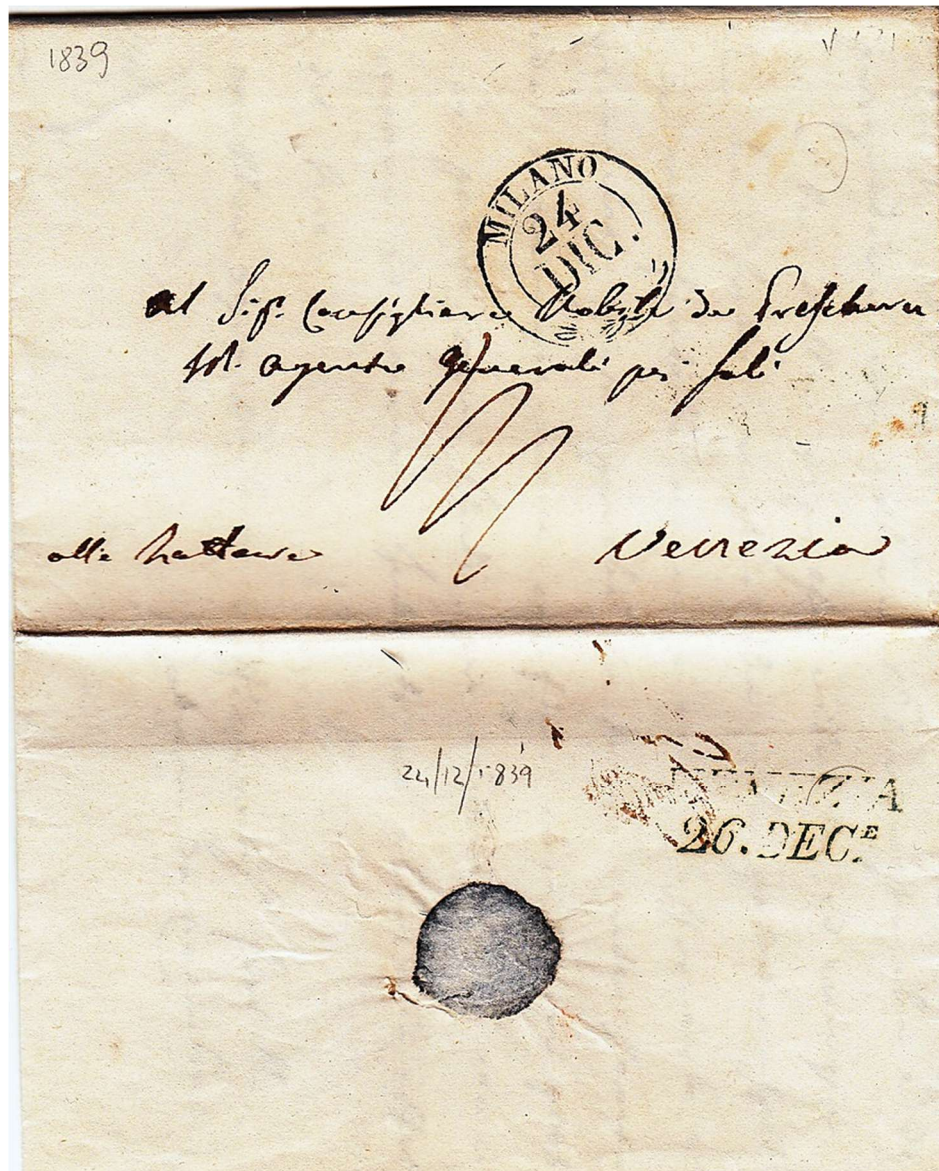 1839
MILANO
24
DIC.
al Sigr. Consigliere Nobile da
agente generale pei sali
alle Zattere Venezia
24/12/1839
VENEZIA
26. DECE.